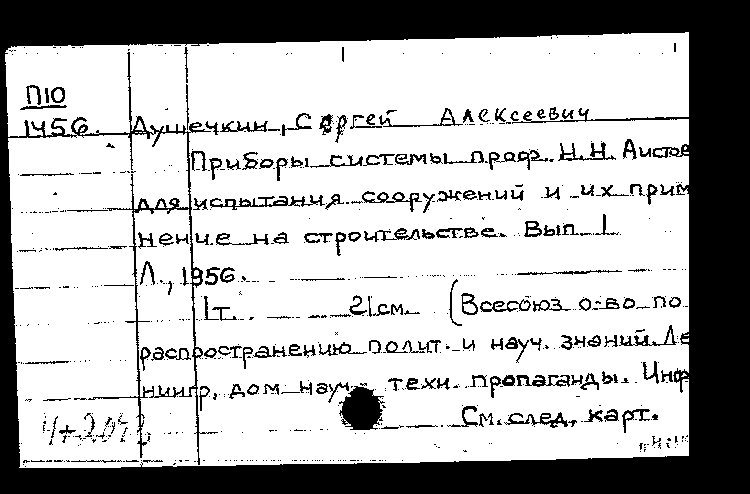 П10
1456. Душечкин, Сергей Алексеевич
Приборы системы проф. Н.Н. Аистов
для испытания сооружений и их прим
нение на строительстве. Вып 1
Л., 1956.
1т. 21см. (Всесоюз о-во по
распространению полит. и науч. знаний. Ле
нингр, дом науч.- техн. пропаганды. Инф
См. след, карт.